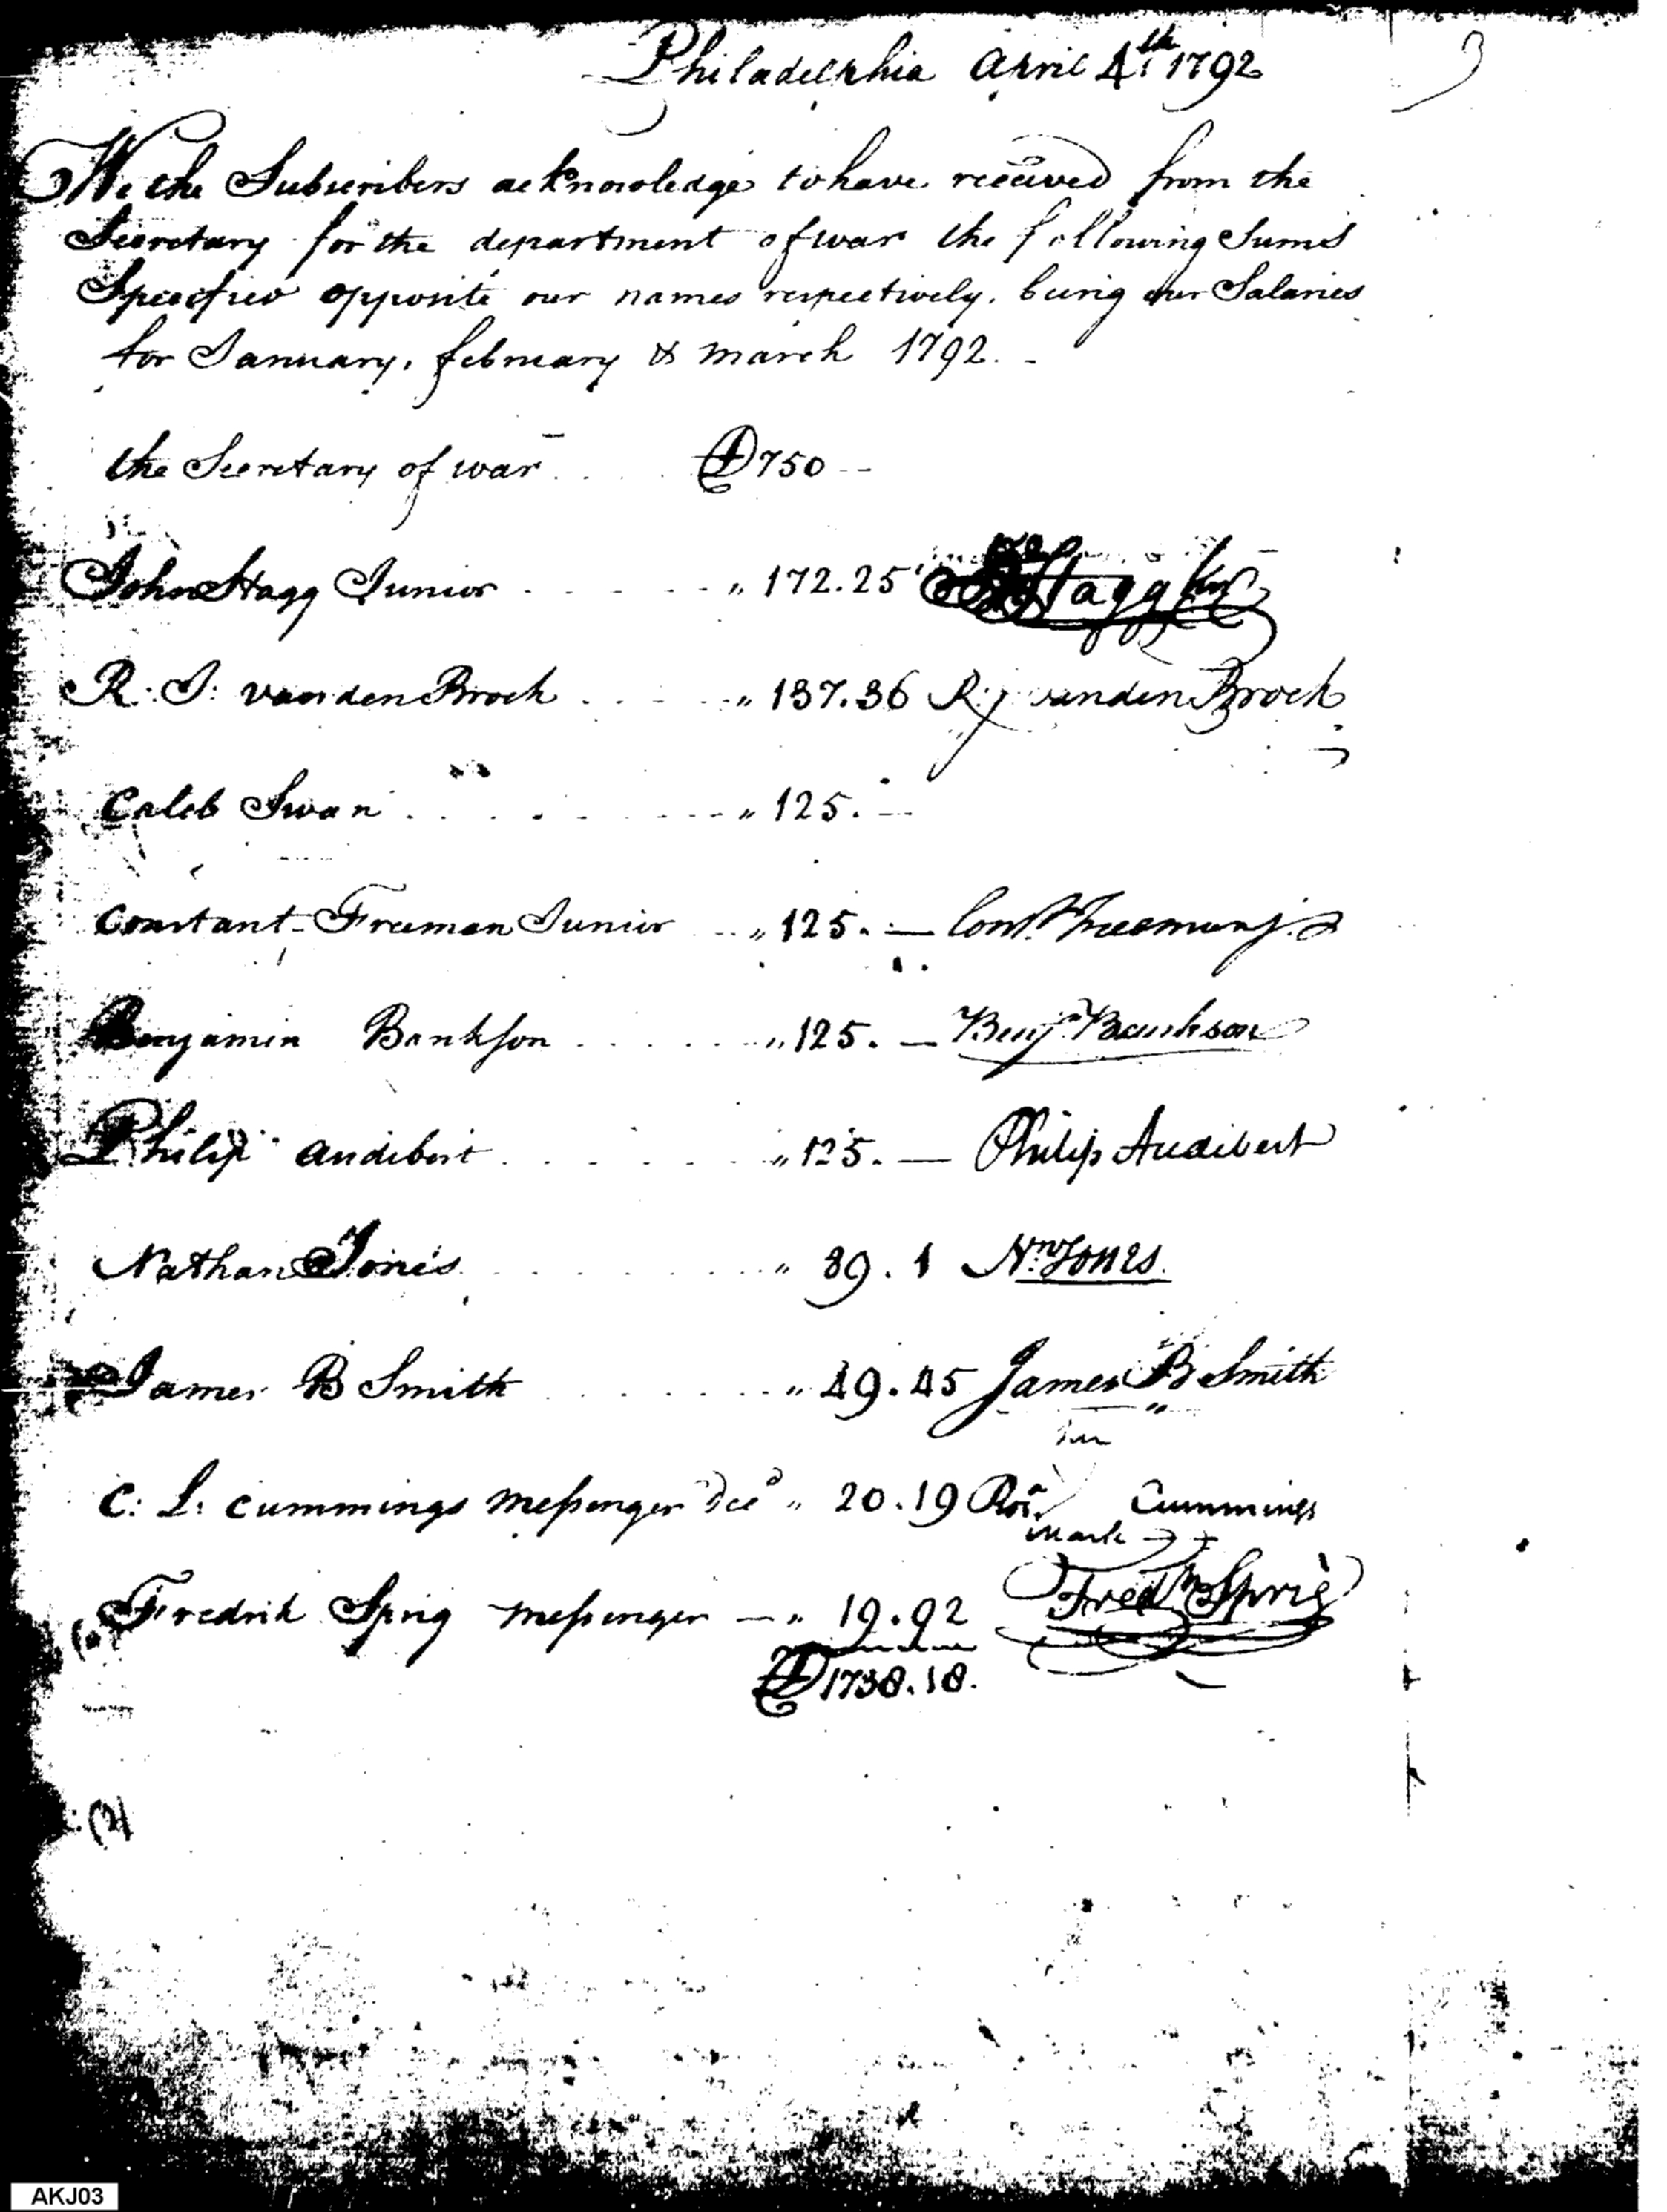 Philadelphia April 4th 1792
We the Subscribers acknowledge to have received from the
Secretary for the department of war the following Sums
Specified opposite our names respectively, being our Salaries
for January, february & march 1792.
the Secretary of war .... D 750 --
John Stagg Junior ..... " 172.25 J Stagg Jun
R: J: vanden Broek ..... " 137.36 R: J vanden Broek
Caleb Swan ..... " 125. --
Constant Freeman Junior .. " 125. — Const. Freeman jr
Benjamin Bankson ..... " 125. — Benjn Bankson
Philip audibert ..... " 125. — Philip Audibert
Nathan Jones ..... " 89. 1 Nn Jones.
James B Smith ..... " 49.45 James B Smith
her
C: L: Cummings messenger decd " 20.19 Cummings
mark
Fredrik Sprig messenger — " 19.92 Fredk Sprig
D 1738.18.
(2)
AKJ03